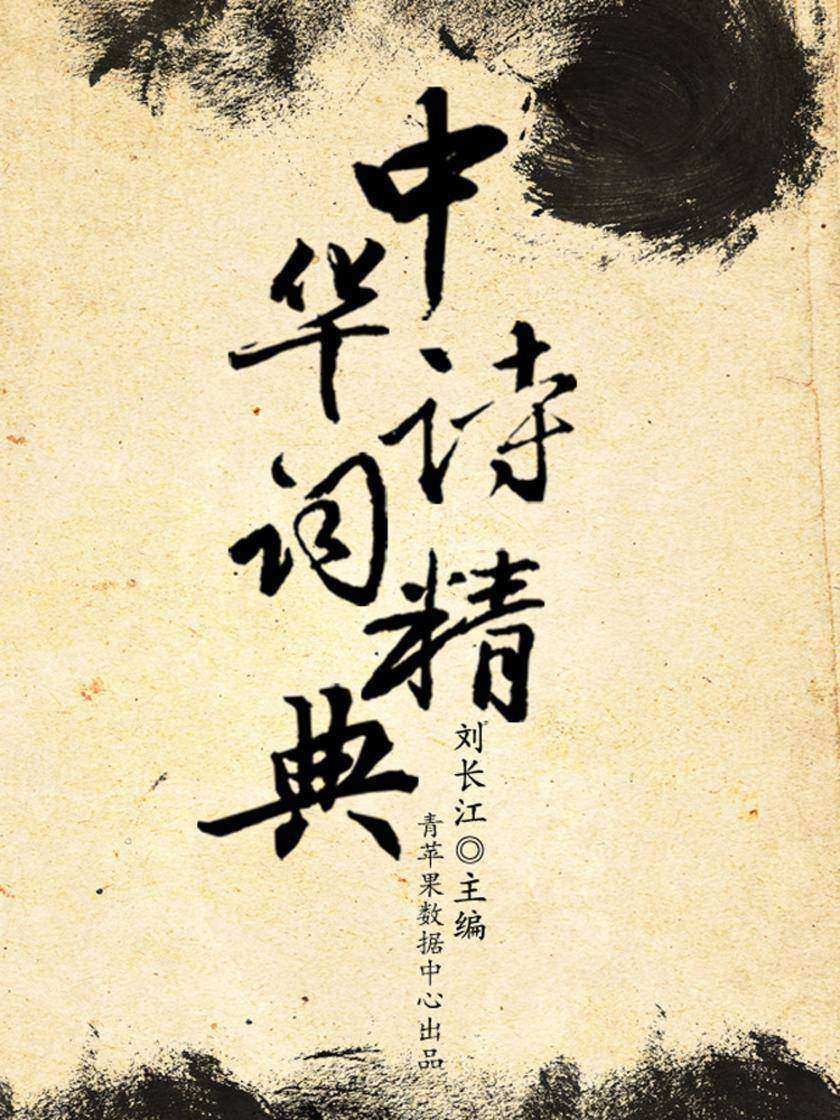 中华诗词精典
刘长江◎主编
青苹果数据中心出品